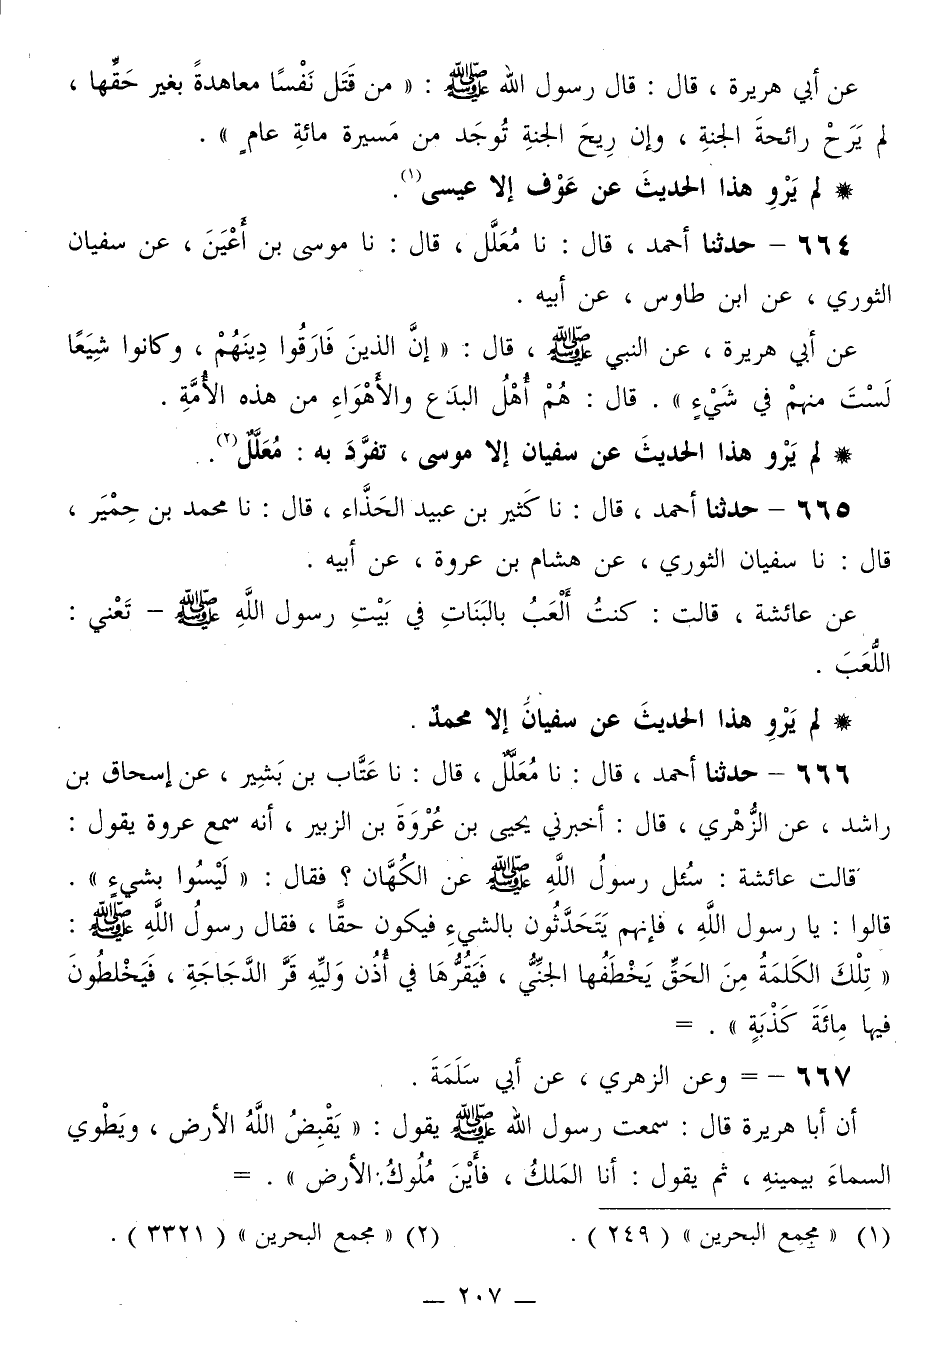 عن أبي هريرة ، قال : قال رسول الله ﷺ : « من قَتَل نَفْسًا معاهدةً بغير حَقِّها ،
لم يَرَحْ رائحةَ الجنةِ ، وإن رِيحَ الجنةِ تُوجَد من مَسيرة مائةِ عامٍ » .
* لم يَرْوِ هذا الحديثَ عن عَوْف إلا عيسى(١).
٦٦٤ – حدثنا أحمد ، قال : نا مُعَلَّل ، قال : نا موسى بن أَعْيَنَ ، عن سفيان
الثوري ، عن ابن طاوس ، عن أبيه .
عن أبي هريرة ، عن النبي ﷺ ، قال : « إنَّ الذينَ فَارَقُوا دِينَهُمْ ، وكانوا شِيَعًا
لَسْتَ منهمْ في شَيْءٍ » . قال : هُمْ أَهْلُ البدَع والأَهْوَاءِ من هذه الأُمَّةِ .
* لم يَرْو هذا الحديثَ عن سفيان إلا موسى ، تفرَّدَ به : مُعَلَّلٌ(٢).
٦٦٥ – حدثنا أحمد ، قال : نا كَثير بن عبيد الحَذَّاء ، قال : نا محمد بن حِمْيَر ،
قال : نا سفيان الثوري ، عن هشام بن عروة ، عن أبيه .
عن عائشة ، قالت : كنتُ أَلْعَبُ بالبَنَاتِ في بَيْتِ رسول اللَّهِ ﷺ – تَعْني :
اللُّعَبَ .
* لم يَرْوِ هذا الحديثَ عن سفيانَ إلا محمدٌ .
٦٦٦ – حدثنا أحمد ، قال : نا مُعَلَّلٌ ، قال : نا عَتَّاب بن بَشِير ، عن إسحاق بن
راشد ، عن الزُّهْري ، قال : أخبرني يحيى بن عُرْوَةَ بن الزبير ، أنه سمع عروة يقول :
قالت عائشة : سُئل رسولُ اللَّهِ ﷺ عن الكُهَّان ؟ فقال : « لَيْسُوا بشيءٍ » .
قالوا : يا رسول اللَّهِ ، فإنهم يَتَحَدَّثُون بالشيءِ فيكون حقًّا ، فقال رسولُ اللَّهِ ﷺ :
« تِلْكَ الكَلمَةُ مِنَ الحَقِّ يَخْطَفُها الجنِّيُّ ، فَيَقُرُّهَا في أُذُن وَليِّه قَرَّ الدَّجَاجَةِ ، فَيَخْلطُونَ
فيها مِائَةَ كَذْبَةٍ » . =
٦٦٧ – = وعن الزهري ، عن أبي سَلَمَةَ .
أن أبا هريرة قال : سمعت رسول الله ﷺ يقول : « يَقْبِضُ اللَّهُ الأرض ، ويَطْوي
السماءَ بيمينهِ ، ثم يقول : أنا المَلكُ ، فأَيْنَ مُلُوكُ الأرض » . =
(١) « مجمع البحرين » ( ٢٤٩ ) . (٢) « مجمع البحرين » ( ٣٣٢١ ) .
— ٢٠٧ —